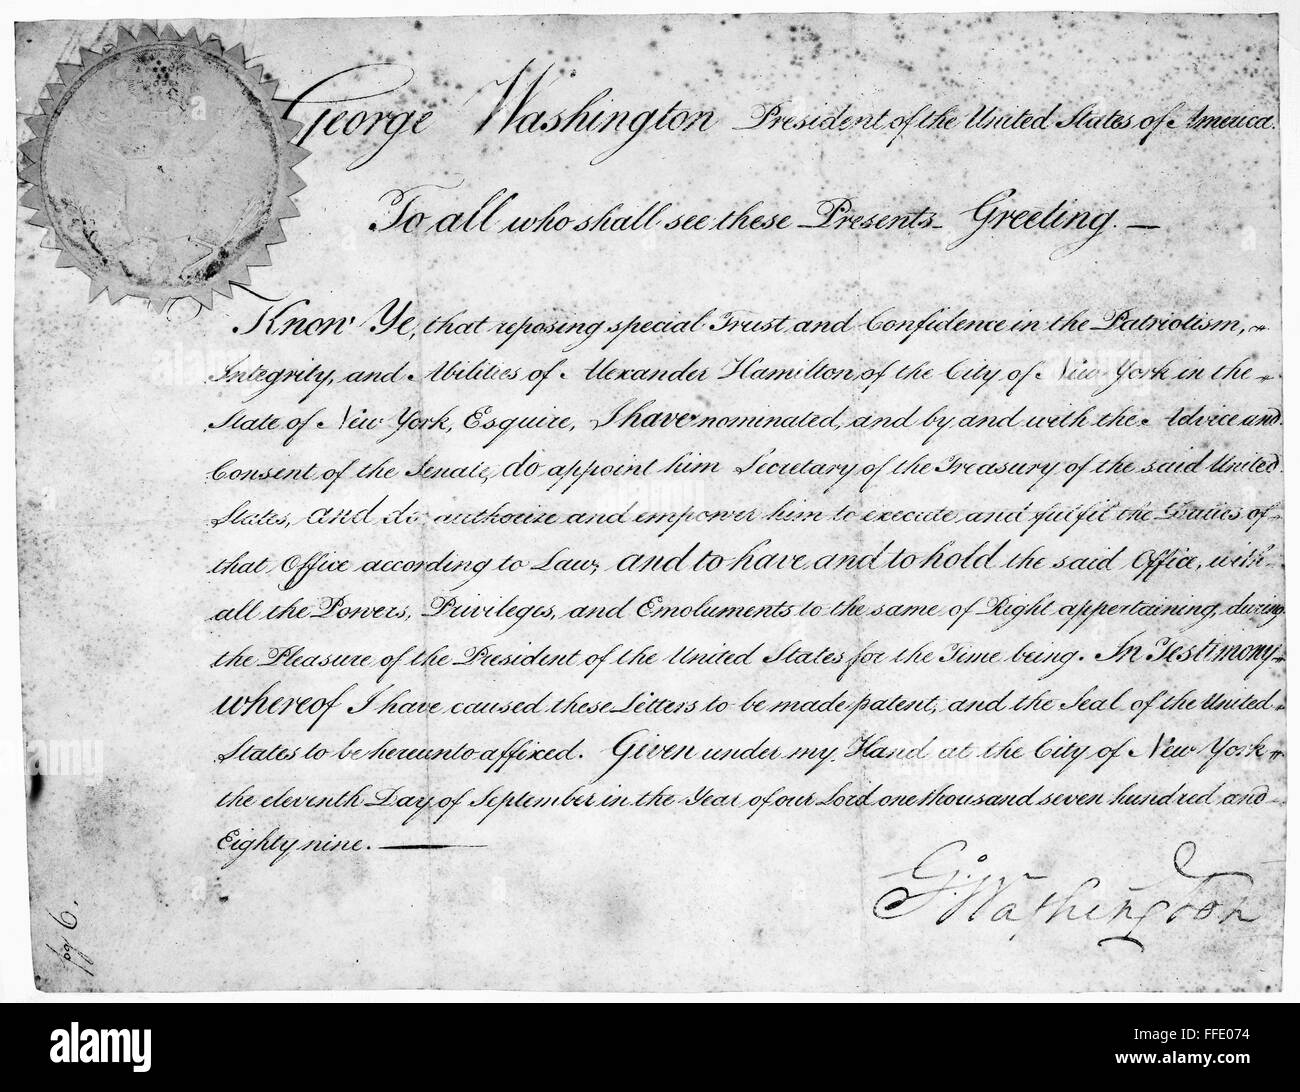 George Washington President of the United States of America.
To all who shall see these Presents Greeting. —
Know Ye, that reposing special Trust and Confidence in the Patriotism,
Integrity, and Abilities of Alexander Hamilton, of the City of New York in the
State of New York, Esquire, I have nominated, and by and with the Advice and
Consent of the Senate, do appoint him Secretary of the Treasury of the said United
States, and do authorize and empower him to execute and fulfil the Duties of
that Office according to Law; and to have and to hold the said Office, with
all the Powers, Privileges, and Emoluments to the same of Right appertaining, during
the Pleasure of the President of the United States for the Time being. In Testimony
whereof I have caused these Letters to be made patent, and the Seal of the United
States to be hereunto affixed. Given under my Hand at the City of New York
the eleventh Day of September in the Year of our Lord one thousand seven hundred and
Eighty nine. —
G:Washington
alamy
Image ID: FFE074
www.alamy.com